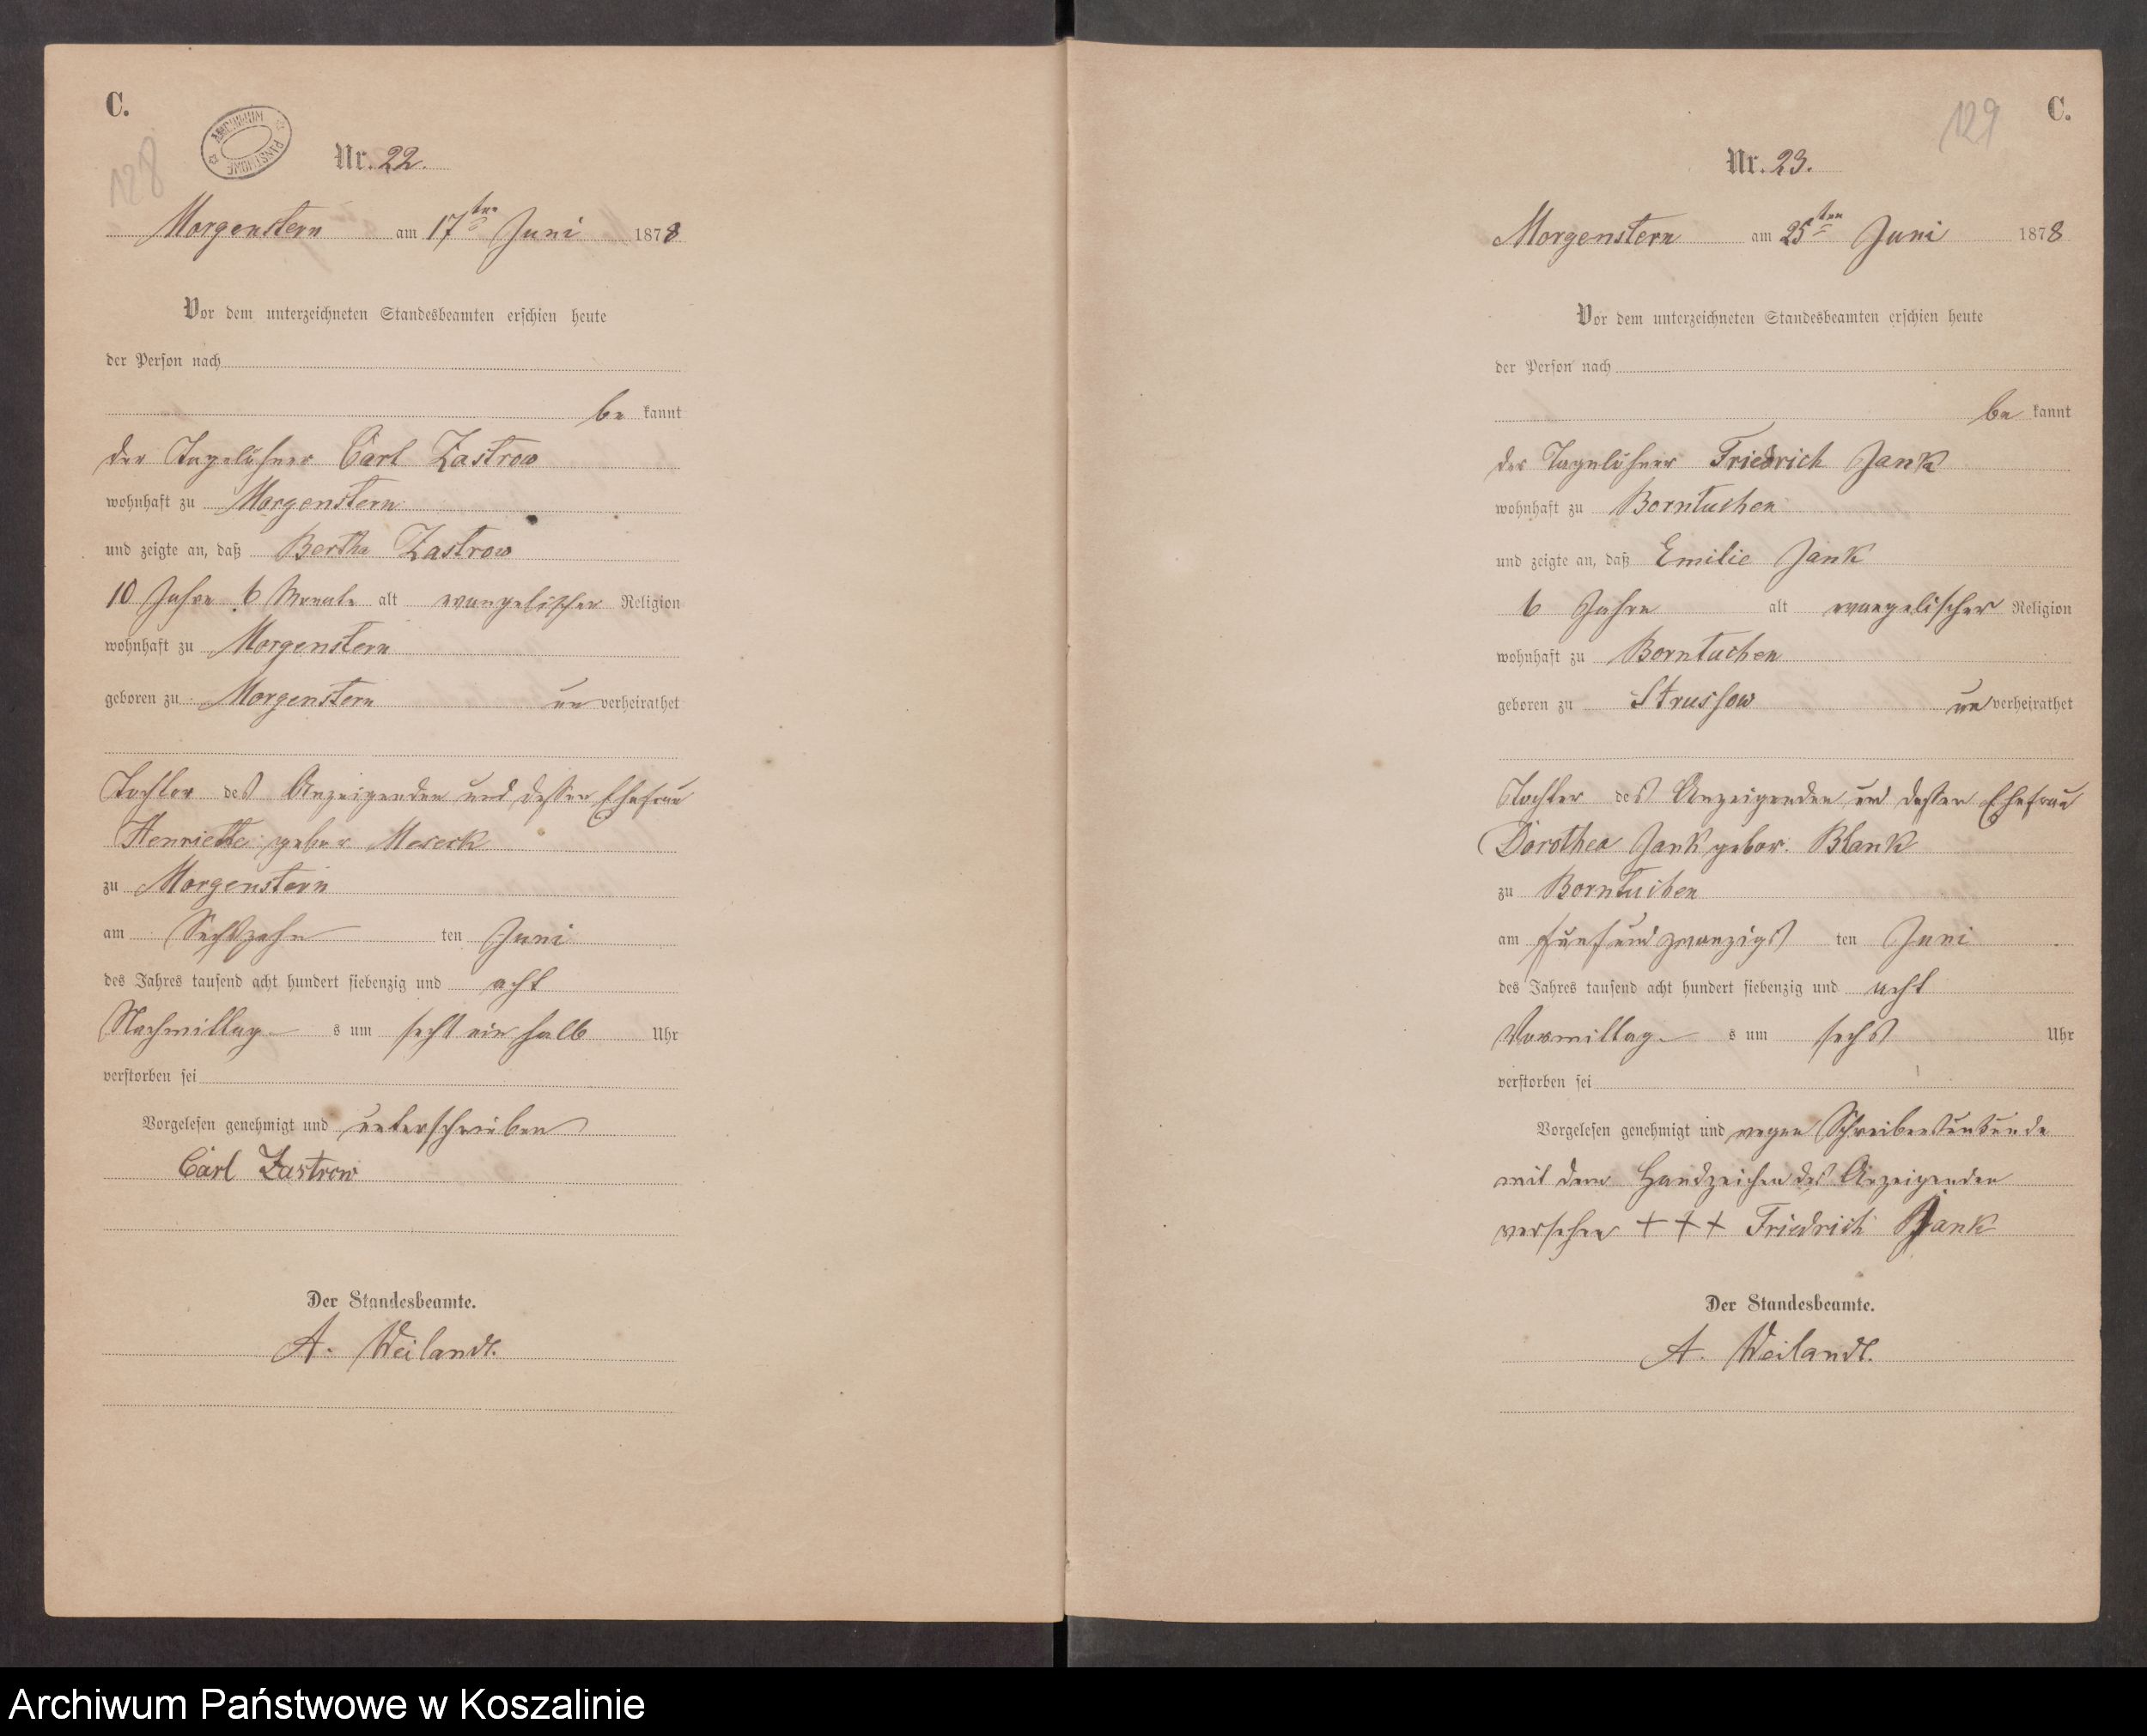 C.
128
ARCHIWUM PAŃSTWOWE
Nr. 22.
Morgenstern am 17ten Juni 1878
Vor dem unterzeichneten Standesbeamten erschien heute
der Person nach
be kannt
der Tagelöhner Carl Zastrow
wohnhaft zu Morgenstern
und zeigte an, daß Bertha Zastrow
10 Jahre 6 Monate alt evangelischer Religion
wohnhaft zu Morgenstern
geboren zu Morgenstern un verheirathet
Tochter des Anzeigenden und dessen Ehefrau
Henriette gebor
zu Morgenstern
am Sechszehn ten Juni
des Jahres tausend acht hundert siebenzig und acht
Nachmittag s um sechs ein halb Uhr
verstorben sei
Vorgelesen genehmigt und unterschrieben
Carl Zastrow
Der Standesbeamte.
A. Weilandt.
129
C.
Nr. 23.
Morgenstern am 25ten Juni 1878
Vor dem unterzeichneten Standesbeamten erschien heute
der Person nach
be kannt
der Tagelöhner Friedrich Jank
wohnhaft zu Borntuchen
und zeigte an, daß Emilie Jank
6 Jahre alt evangelischer Religion
wohnhaft zu Borntuchen
geboren zu Strussow un verheirathet
Tochter des Anzeigenden und dessen Ehefrau
Dorothea Jank gebor. Blank
zu Borntuchen
am fünf und zwanzigs ten Juni
des Jahres tausend acht hundert siebenzig und acht
Vormittag s um sechs Uhr
verstorben sei
Vorgelesen genehmigt und wegen Schreibensunkunde
mit dem Handzeichen des Anzeigenden
versehen +++ Friedrich Jank
Der Standesbeamte.
A. Weilandt.
Archiwum Państwowe w Koszalinie